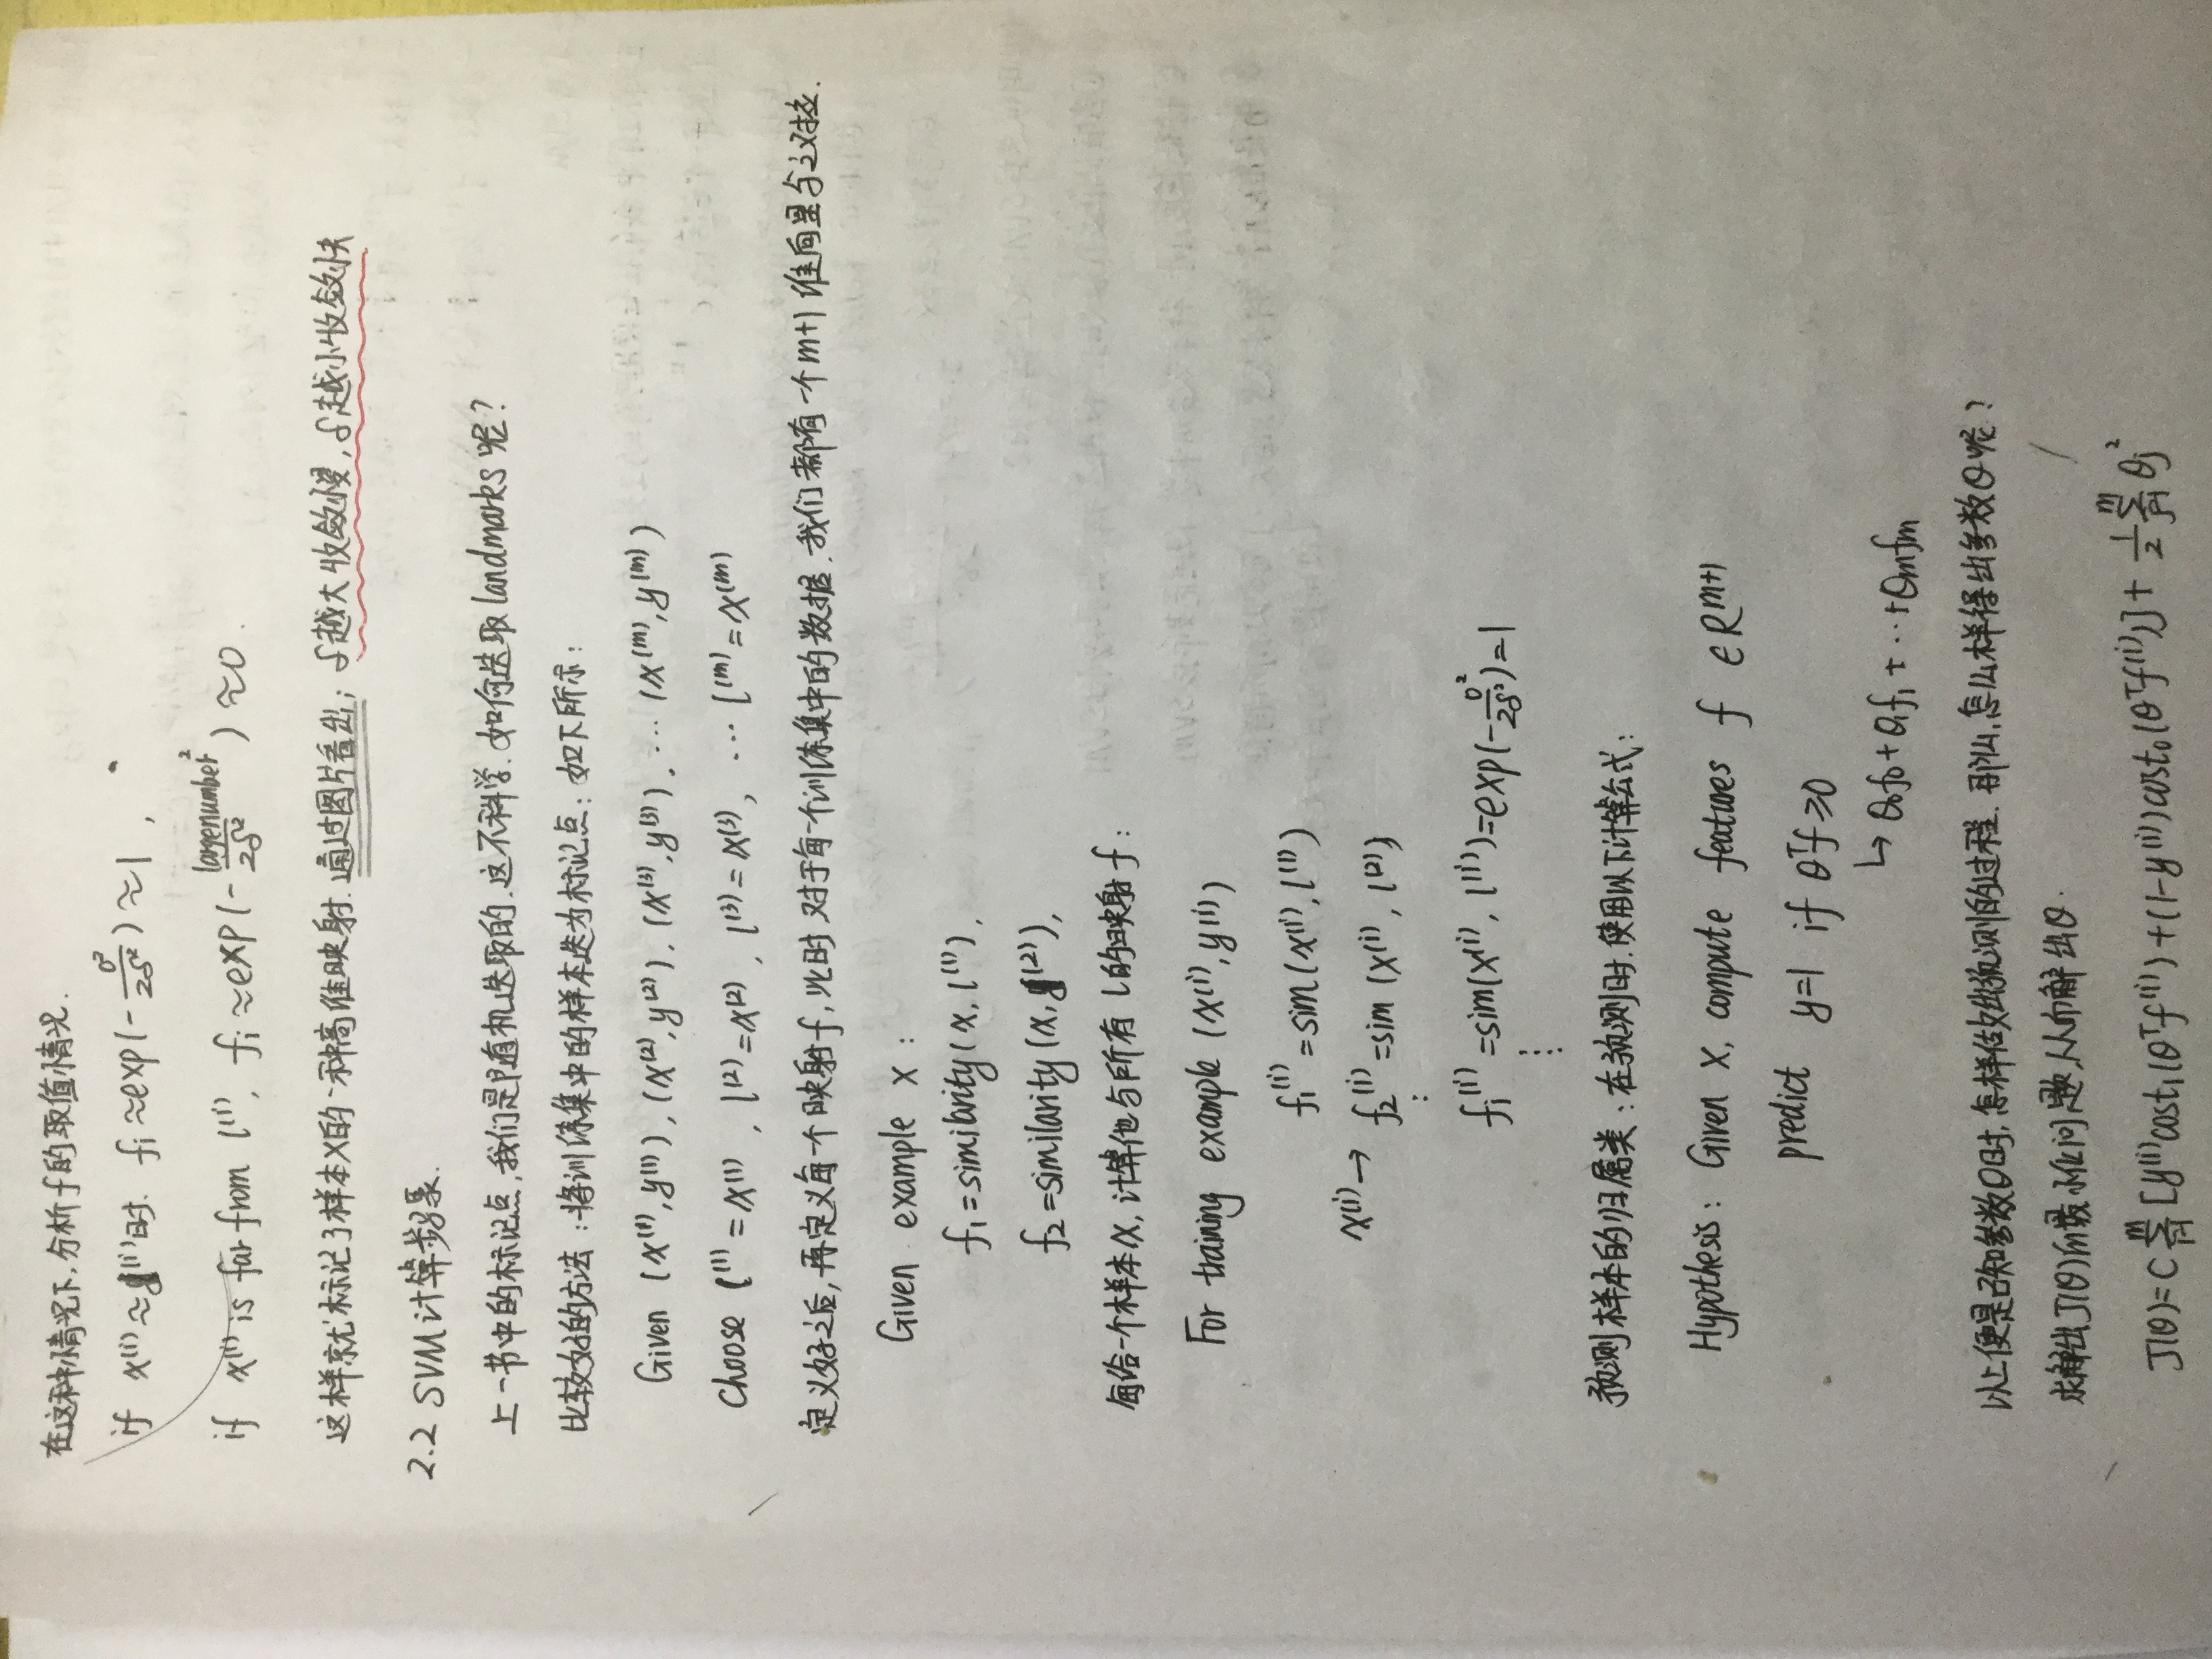 在这种情况下,分析f的取值情况.
if x⁽ⁱ⁾≈l⁽ⁱ⁾时. f₁≈exp(-0²/2δ²)≈1,
if x⁽ⁱ⁾ is far from l⁽ⁱ⁾, f₁≈exp(-largenumber²/2δ²)≈0.
这样就标记了样本X的一种高维映射.通过图片看出;δ越大收敛慢,δ越小收敛快
2.2 SVM计算步骤.
上一节中的标记点,我们是随机选取的.这不科学.如何选取landmarks呢?
比较好的方法:将训练集中的样本选为标记点:如下所示:
Given (x⁽¹⁾,y⁽¹⁾),(x⁽²⁾,y⁽²⁾),(x⁽³⁾,y⁽³⁾),…(x⁽ᵐ⁾,y⁽ᵐ⁾)
Choose l⁽¹⁾=x⁽¹⁾,l⁽²⁾=x⁽²⁾,l⁽³⁾=x⁽³⁾,…l⁽ᵐ⁾=x⁽ᵐ⁾
定义好之后,再定义每一个映射f,此时,对于每一个训练集中的数据,我们都有一个m+1维向量与之对应.
Given example x:
f₁=similarity(x,l⁽¹⁾),
f₂=similarity(x,l⁽²⁾),
每给一个样本x,计算他与所有l的映射f:
For training example (x⁽ⁱ⁾,y⁽ⁱ⁾)
f₁⁽ⁱ⁾=sim(x⁽ⁱ⁾,l⁽¹⁾)
x⁽ⁱ⁾→ f₂⁽ⁱ⁾=sim(x⁽ⁱ⁾,l⁽²⁾)
⋮
fᵢ⁽ⁱ⁾=sim(x⁽ⁱ⁾,l⁽ⁱ⁾)=exp(-0²/2δ²)=1
⋮
预测样本的归属类:在预测时.使用以下计算公式:
Hypothesis: Given X, compute features f ∈R^{m+1}
predict y=1 if θᵀf≥0
↳ θ₀f₀+θ₁f₁+…+θₘfₘ
以上便是已知参数θ时,怎样做出预测的过程.那么,怎么样得出参数θ呢?
求解出J(θ)的最小化问题,从而解出θ.
J(θ)=C∑ᵢ₌₁ᵐ[y⁽ⁱ⁾cost₁(θᵀf⁽ⁱ⁾)+(1-y⁽ⁱ⁾)cost₀(θᵀf⁽ⁱ⁾)]+½∑ⱼ₌₁ᵐθⱼ²